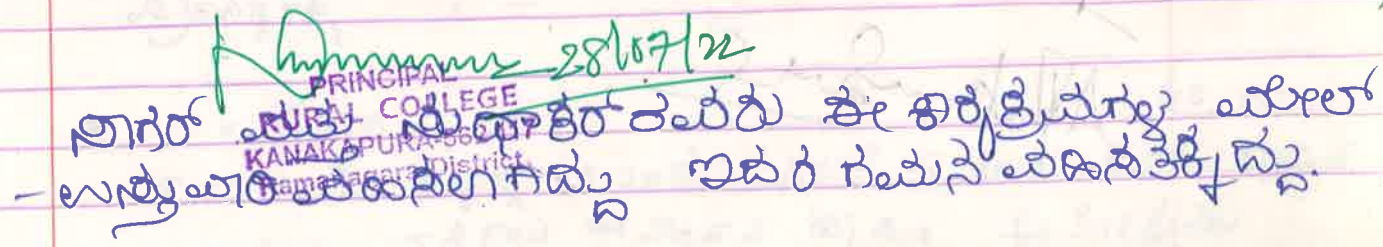 28/07/22
PRINCIPAL
RURAL COLLEGE
KANAKAPURA-562117
Ramanagara District
ನಾಗರ್ ಮತ್ತು ಸುಧಾಕರ್ ರವರು ಈ ಕಾರ್ಯಕ್ರಮಗಳ ಮೇಲ್
-ಉಸ್ತುವಾರಿ ವಹಿಸಲಾಗಿದ್ದು ಇದರ ಗಮನ ವಹಿಸತಕ್ಕದ್ದು.